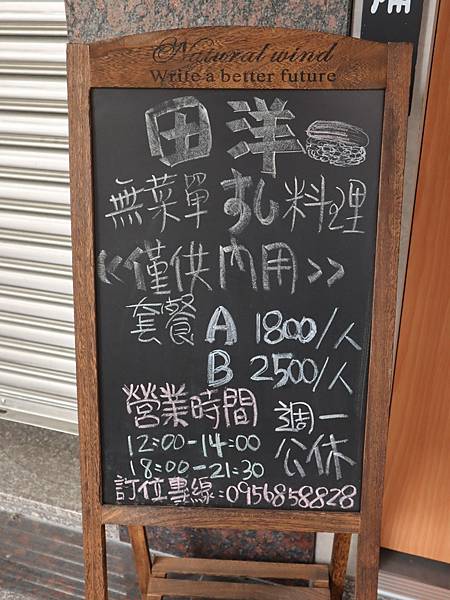 Natural wind
Write a better future
田洋
無菜單 すし料理
<<僅供內用>>
套餐 A 1800/人
B 2500/人
營業時間
12:00-14:00
18:00-21:30
週一
公休
訂位專線:0956858828